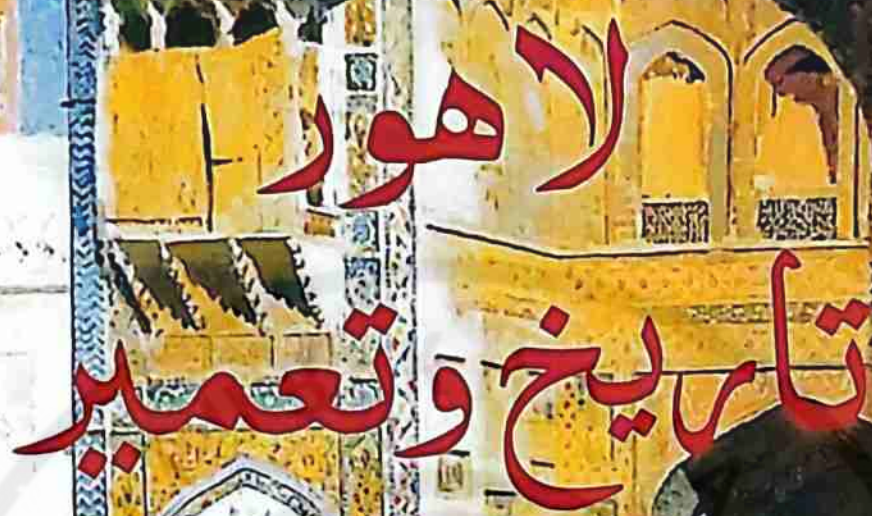 لاہور
تاریخ و تعمیر